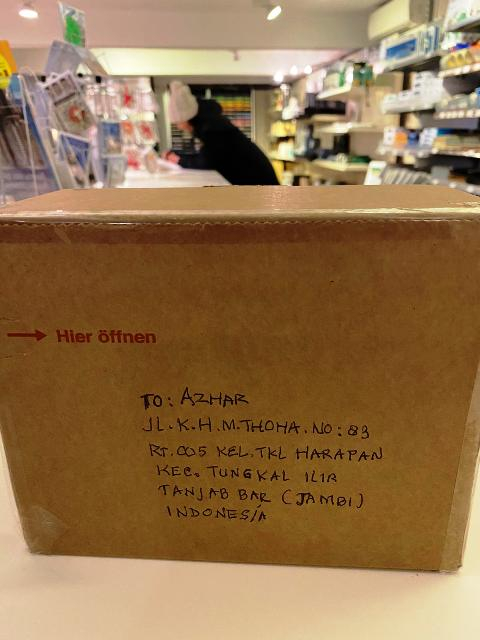 Hier öffnen
TO: AZHAR
JL.K.H.M.THOHA.NO:83
RT.005 KEL.TKL HARAPAN
KEC. TUNGKAL ILIR
TANJAB BAR (JAMBI)
INDONESIA